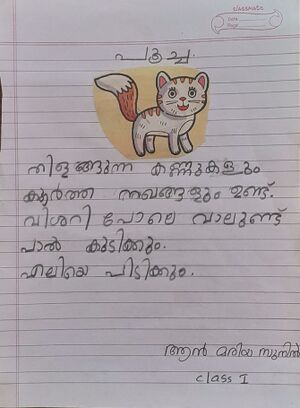 classmate
Date
Page
പൂച്ച.
തിളങ്ങുന്ന കണ്ണുകളും
കൂർത്ത നഖങ്ങളും ഉണ്ട്.
വിശറി പോലെ വാലുണ്ട്
പാൽ കുടിക്കും.
എലിയെ പിടിക്കും.
ആൻ മരിയ സുനിൽ
class I